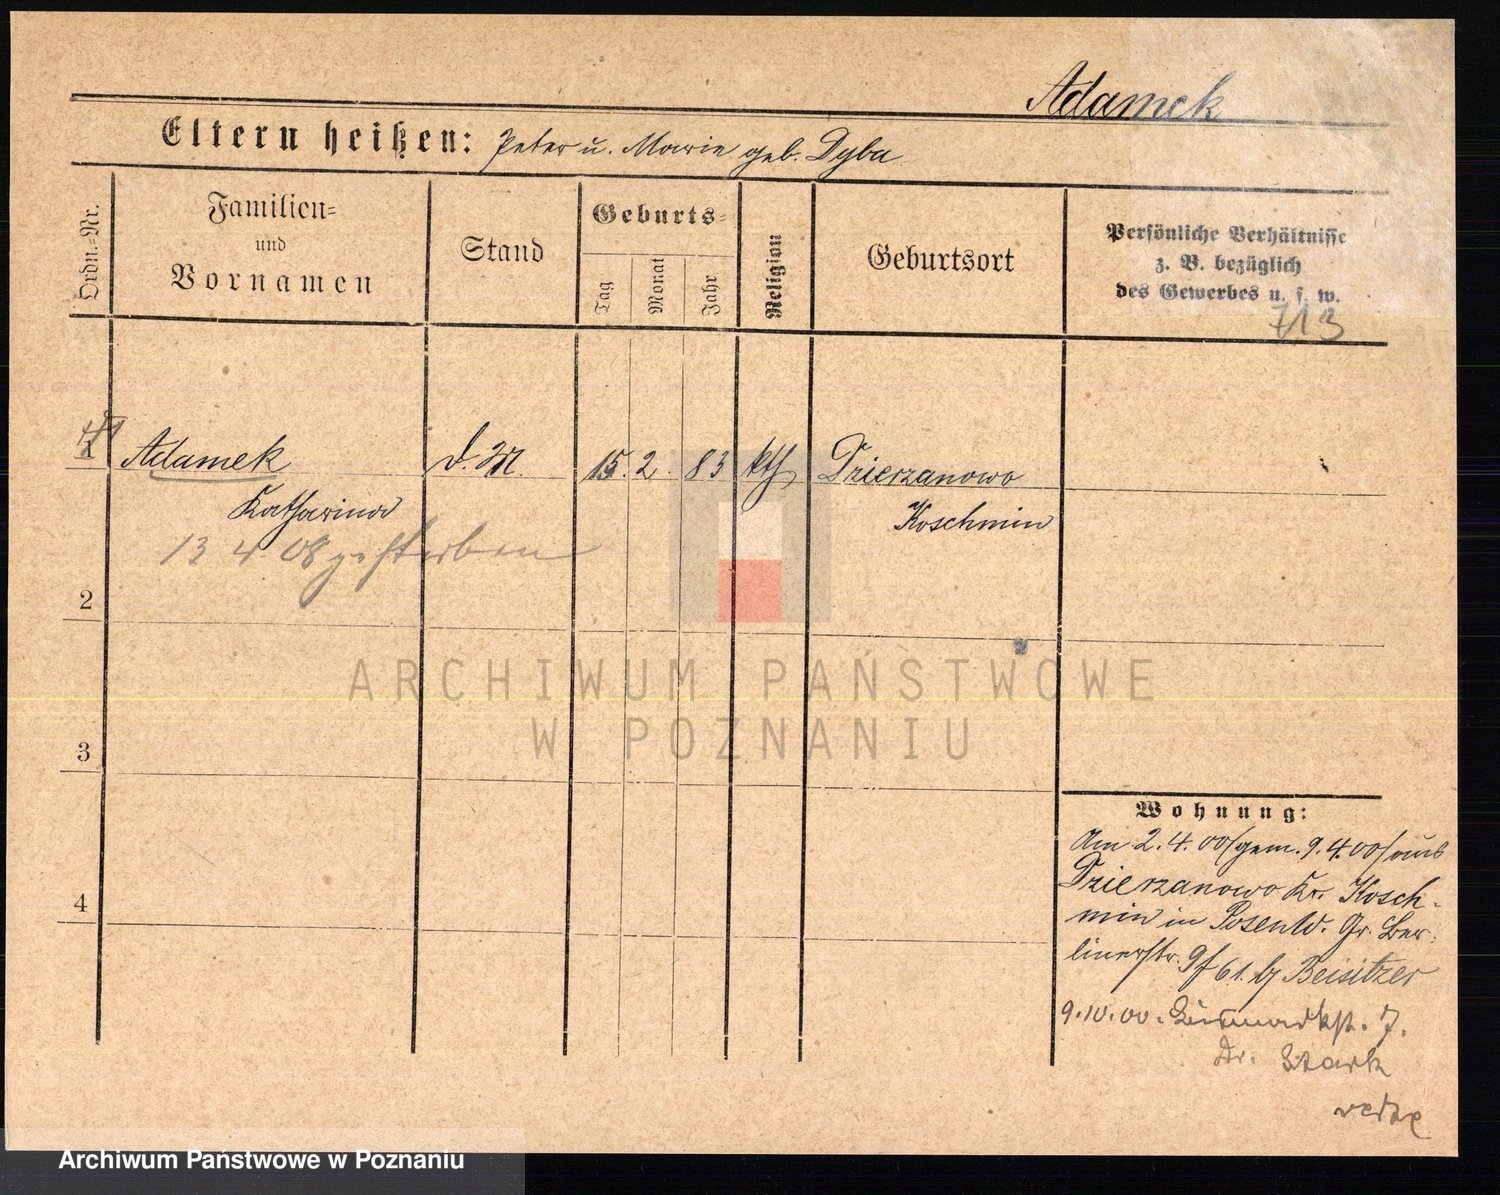 Adamek
Eltern heißen: Peter u. Marie geb. Dyba
Ordn.-Nr.
Familien- und Vornamen
Stand
Geburts-
Tag
Monat
Jahr
Religion
Geburtsort
Persönliche Verhältnisse
z. B. bezüglich
des Gewerbes u. s. w.
713
1 Adamek d. M. 15. 2. 83 kth Dzierzanowo
Katharina Koschmin
13 4 08 gestorben
2
3
4
ARCHIWUM PAŃSTWOWE
W POZNANIU
Wohnung:
Am 2. 4. 00/gem. 9. 4. 00/aus
Dzierzanowo Kr. Kosch-
min in Posen W. Gr. Ber-
linerstr. 61. b/ Beisitzer
9. 10. 00. 7.
Dr. Stark
Archiwum Państwowe w Poznaniu